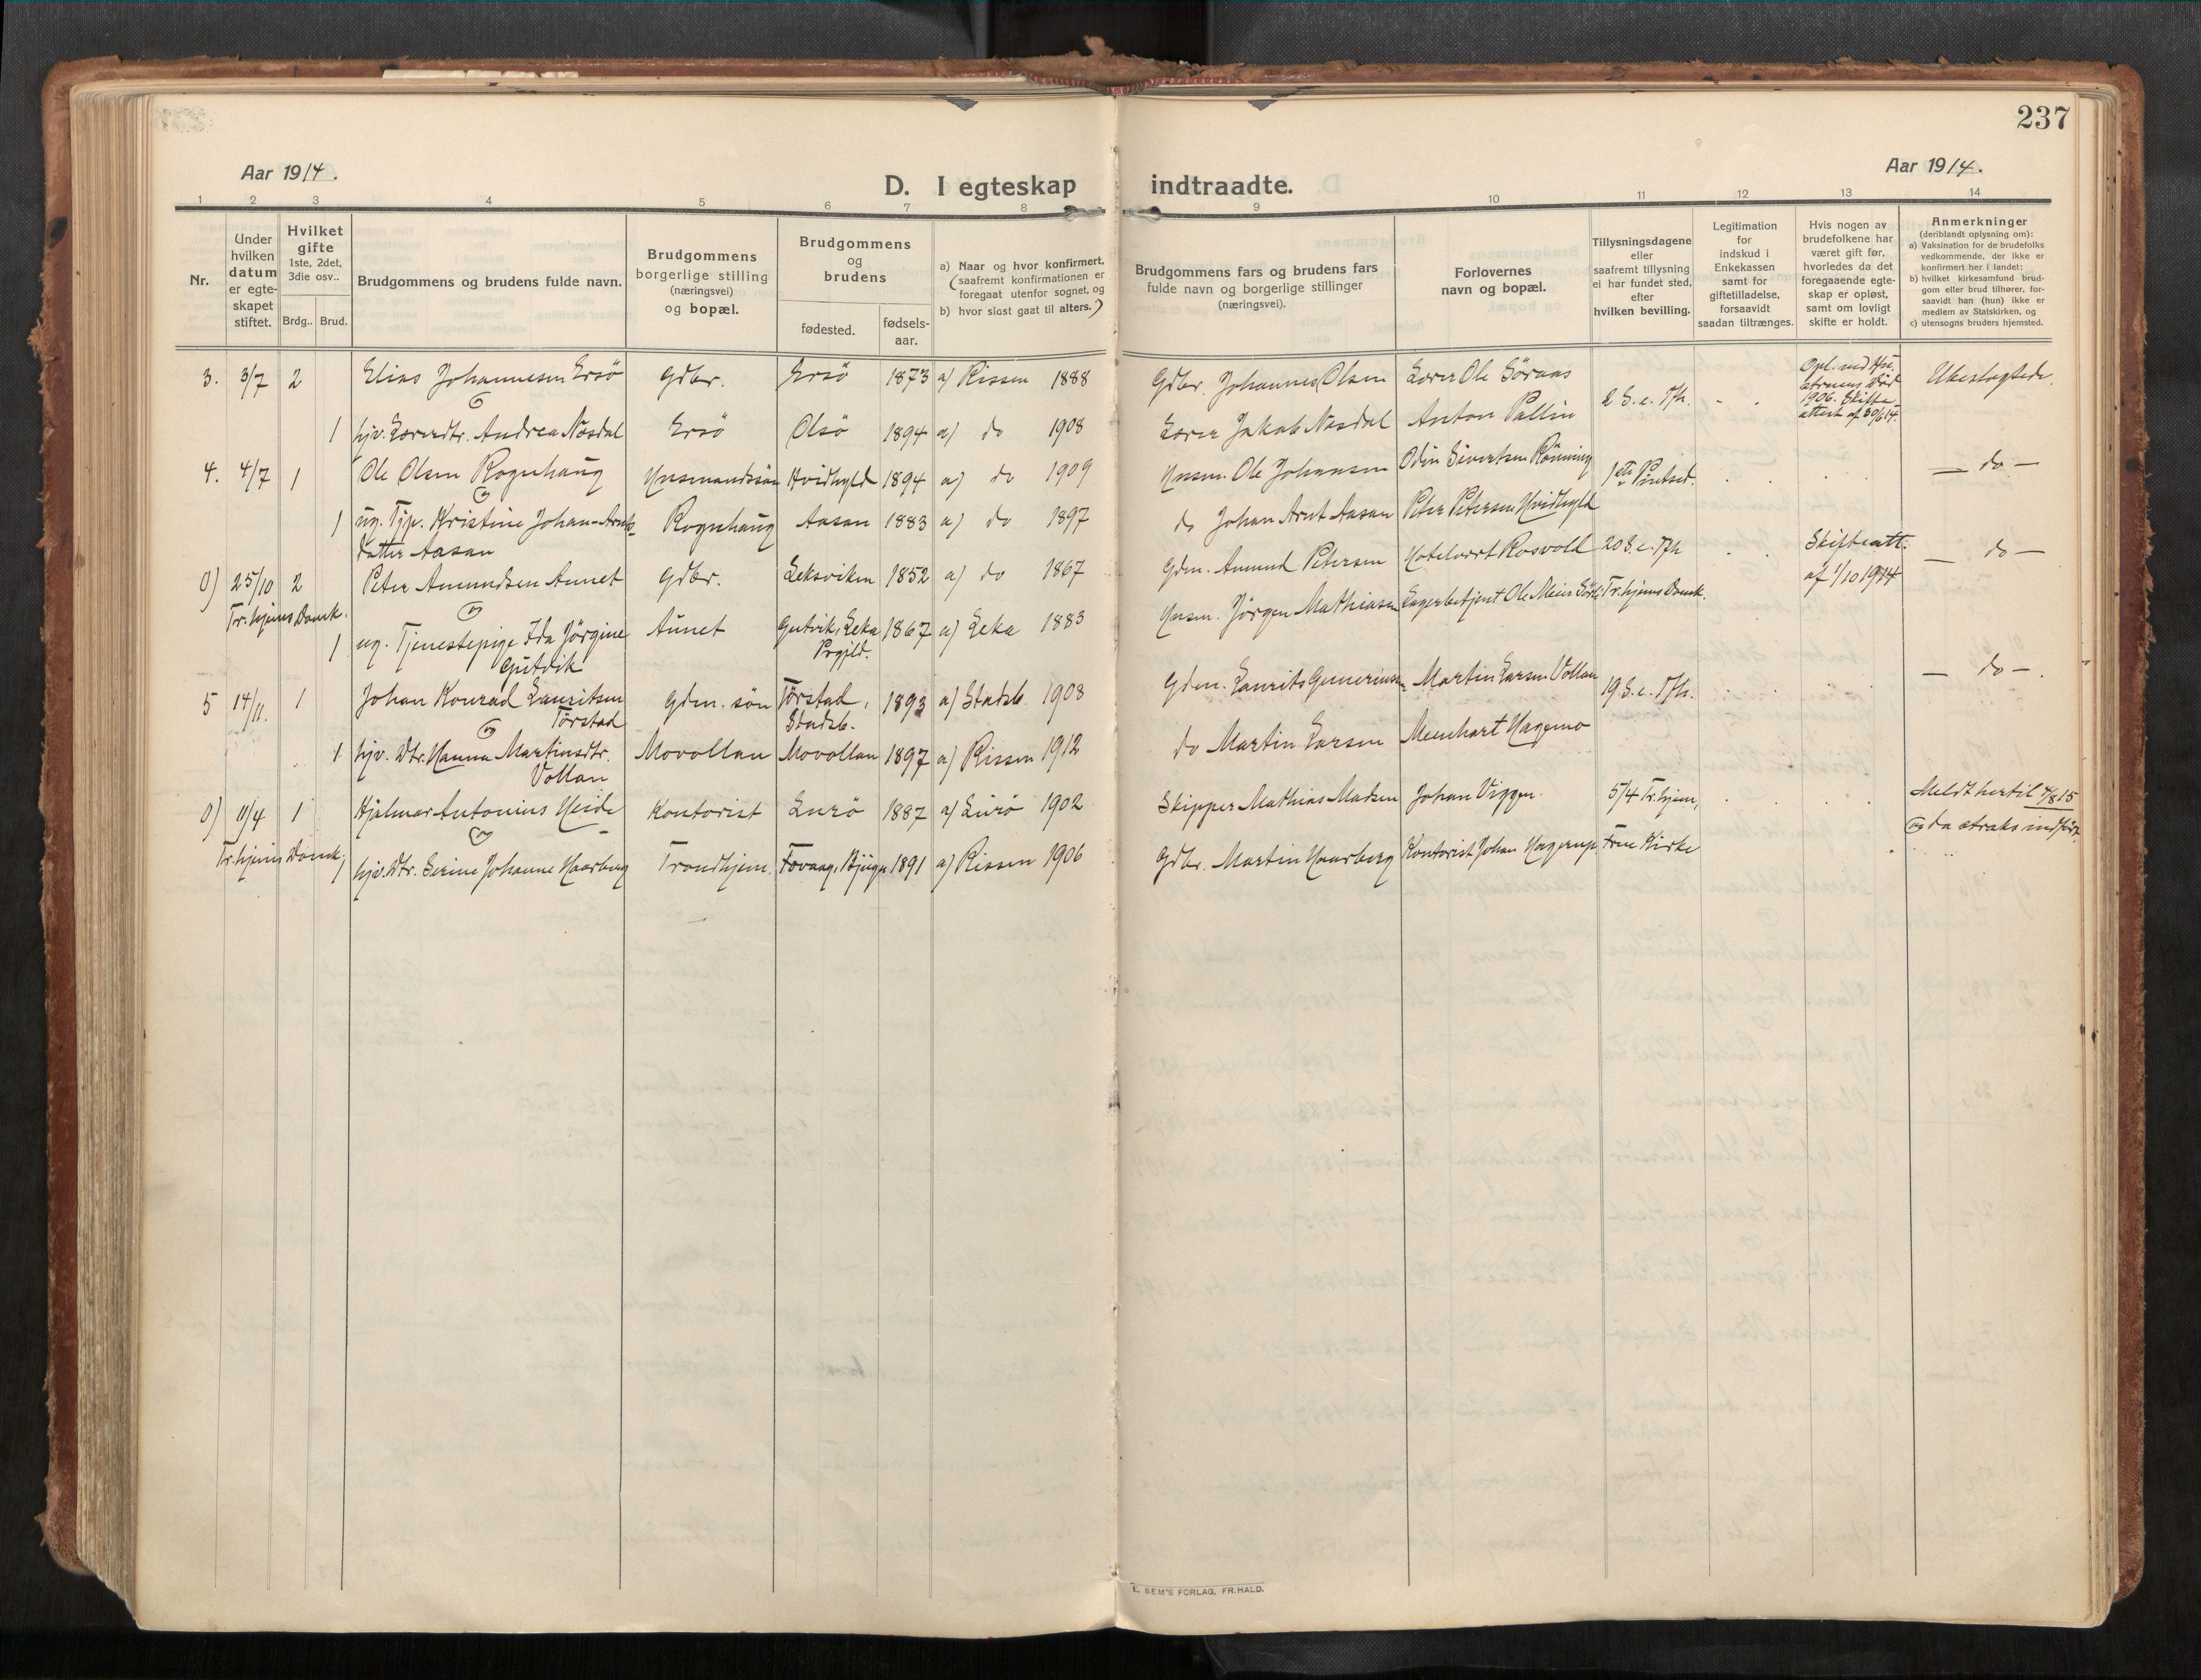 237
Aar 1914.
Aar 1914.
D. I egteskap indtraadte.
1 2 3 4 5 6 7 8 9 10 11 12 13 14
Nr.
Under hvilken datum er egte-skapet stiftet.
Hvilket gifte
1ste, 2det, 3die osv..
Brdg.. Brud.
Brudgommens og brudens fulde navn.
Brudgommens borgerlige stilling (næringsvei) og bopæl.
Brudgommens og brudens
fødested.
fødsels-aar.
a) Naar og hvor konfirmert, (saafremt konfirmationen er foregaat utenfor sognet, og
b) hvor sidst gaat til alters.)
Brudgommens fars og brudens fars fulde navn og borgerlige stillinger (næringsvei).
Forlovernes navn og bopæl.
Tillysningsdagene eller saafremt tillysning ei har fundet sted, efter hvilken bevilling.
Legitimation for indskud i Enkekassen samt for giftetilladelse, forsaavidt saadan tiltrænges.
Hvis nogen av brudefolkene har været gift før, hvorledes da det foregaaende egte-skap er opløst, samt om lovligt skifte er holdt.
Anmerkninger
(deriblandt oplysning om):
a) Vaksination for de brudefolks vedkommende, der ikke er konfirmert her i landet;
b) hvilket kirkesamfund brud-gom eller brud tilhører, for-saavidt han (hun) ikke er medlem av Statskirken, og
c) utensogns bruders hjemsted.
3. 3/7 2 Elias Johannesen Ersö Gdbr. Ersö 1873 a) Rissen 1888 Gdbr. Johannes Olsen Lærer Ole Söraas 2 S. e. Tr. Opl. ved Hu-struens Död 1906. Skifte-attest af 30/6 14. Ubeslegtede.
1 hjv. Lærerdtr. Andrea Nosdal Ersö Olsö 1894 a) do 1908 Lærer Jakob Nosdal Anton Pallin
4. 4/7 1 Ole Olsen Rognhaug Husmandssön Hvidhyld 1894 a) do 1909 Husm. Ole Johansen Odin Sivertsen Rönning 1ste Pintsed. — do —
1 ug. Tjp. Kristine Johan-Arnts-datter Aasan Rognhaug Aasan 1883 a) do 1897 do Johan Arnt Aasan Peter Petersen Hvidhyld
0) 25/10 2 Peter Amundsen Aunet Gdbr. Leksviken 1852 a) do 1867 Gdm. Amund Petersen Hotelvært Rosvold 20 S. e. Tr. Skifteatt. af 1/10 1914 — do —
Tr.hjems Domk.
1 ug. Tjenestepige Ida Jörgine Gutvik Aunet Gutvik, Leka Prgjld. 1867 a) Leka 1883 Husm. Jörgen Mathiasen Lagerbetjent Ole Meier Tr.hjems Domk.
5 14/11. 1 Johan Konrad Lauritsen Törstad Gdm. sön Törstad, Stadsb. 1893 a) Stadsb. 1908 Gdm. Laurits Guneriussen Martin Larsen Vollan 19 S. e. Tr. — do —.
1 hjv. Dtr. Hanna Martinsdtr. Vollan Movollan Movollan 1897 a) Rissen 1912 do Martin Larsen Meenhart Hagemo
0) 11/4 1 Hjalmar Antonius Heide Kontorist Lurö 1887 a) Lurö 1902 Skipper Mathias Madsen Johan Viggen. 5/4 Tr.hjem, Meldt hertil 4/8 15 og da straks indfört.
Tr.hjems Domk;
hjv. Dtr. Serine Johanne Haarberg Trondhjem. Tovaag, Bjugn 1891 a) Rissen 1906 Gdbr. Martin Haarberg Kontorist Johan Hagerup Frue Kirke
E. SEM'S FORLAG, FR.HALD.